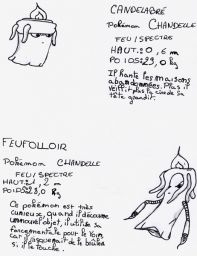 CANDELABRE
Pokémon CHANDELLE
FEU/SPECTRE
HAUT: 0,6 m
POIDS: 29,0 Kg
IP hante les maisons
abandonnées. Plus il
vieillit plus la cire de sa
tête grandit.
FEUFOLLOIR
Pokémon CHANDELLE
FEU/SPECTRE
HAUT: 1,2 m
POIDS: 23,0 Kg
Ce pokémon est très
curieux, quand il découvre
un nouvel objet, il utilise sa
force mentale pour le voir
car il risquerait de le brûler
s'il le touche.